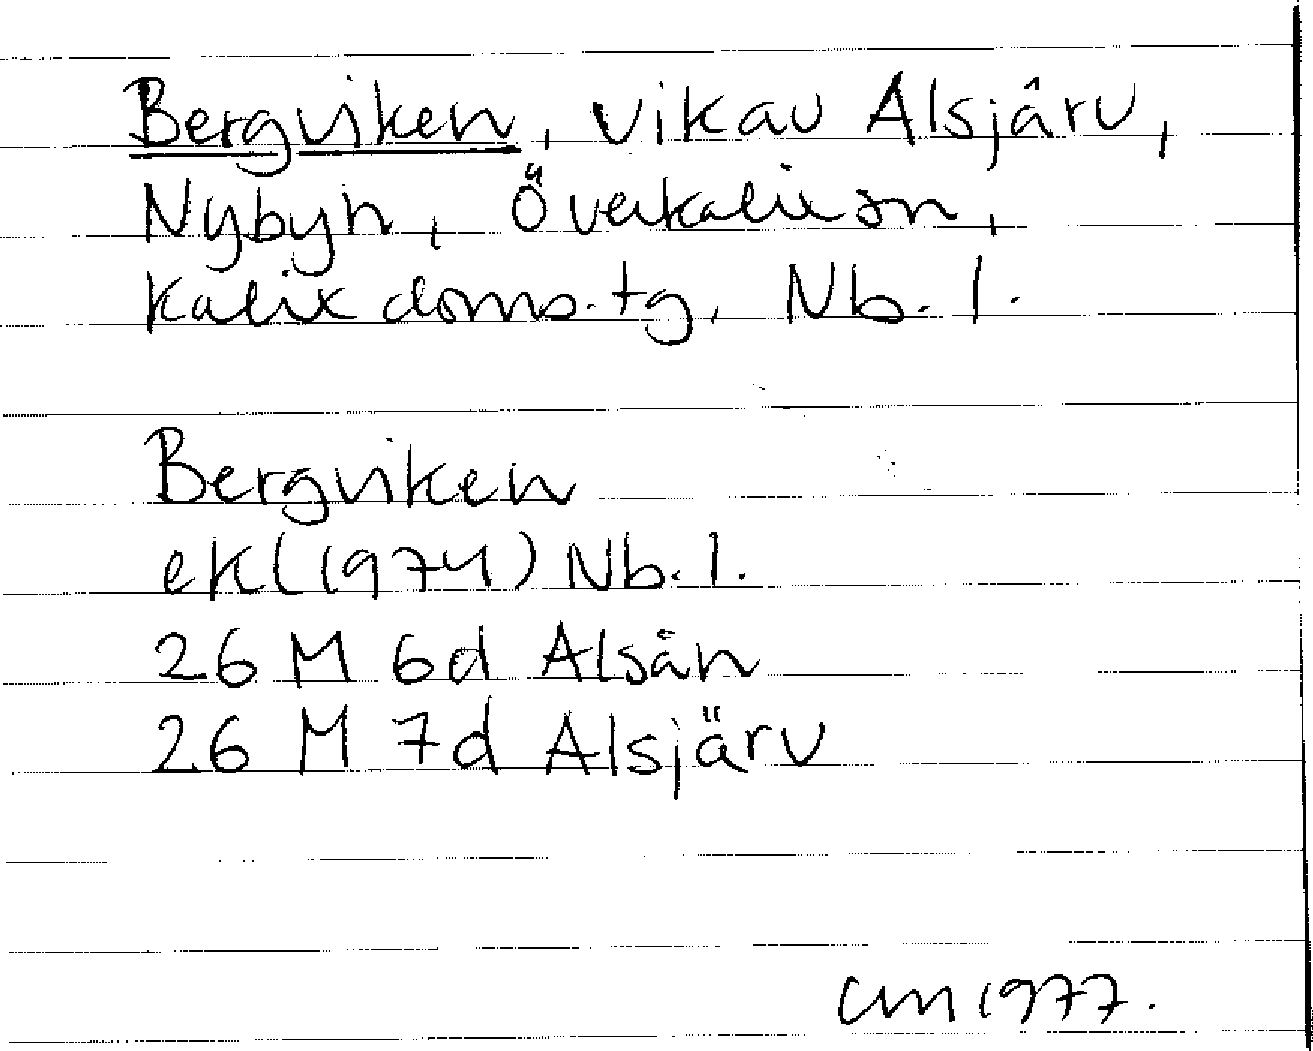 Bergviken, vik av Alsjärv,
Nybyn, Överkalix sn,
Kalix doms.tg, Nb. l.
Bergviken
ek (1974) Nb. l.
26 M 6d Alsån
26 M 7d Alsjärv
CM 1977.